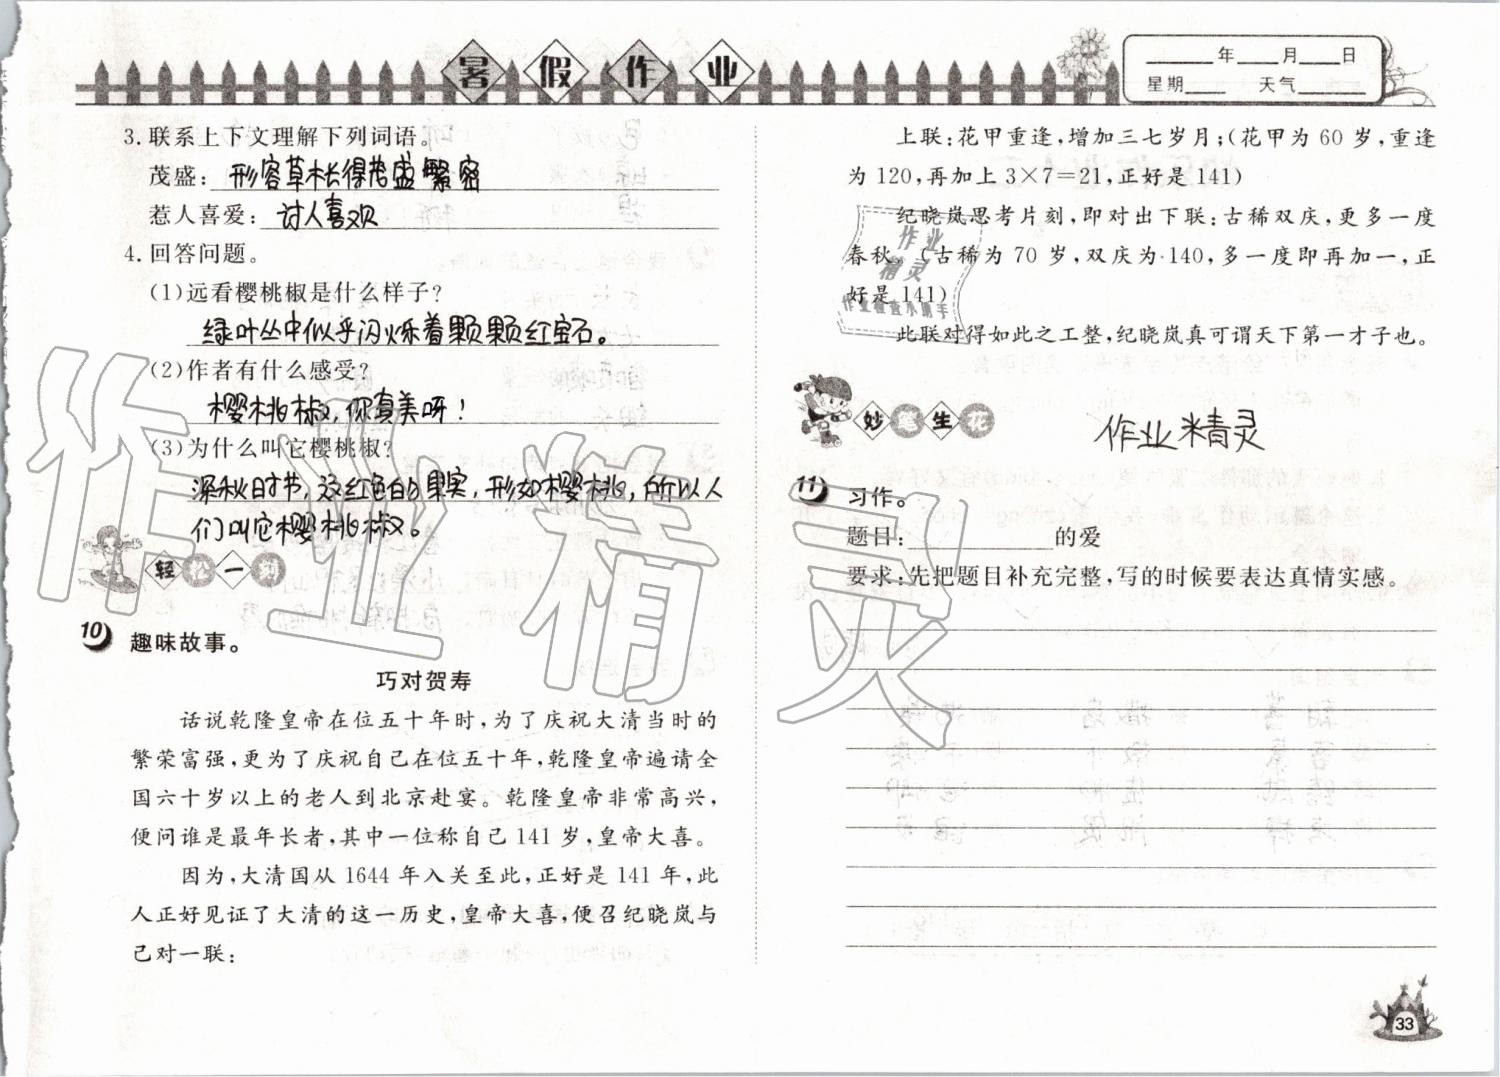 暑假作业
____年____月____日
星期____ 天气______
3.联系上下文理解下列词语。
茂盛:形容草木长得茂盛繁密
惹人喜爱:讨人喜欢
4.回答问题。
(1)远看樱桃椒是什么样子?
绿叶丛中似乎闪烁着颗颗红宝石。
(2)作者有什么感受?
樱桃椒,你真美呀!
(3)为什么叫它樱桃椒?
深秋时节,这红色的果实,形如樱桃,所以人
们叫它樱桃椒。
轻松一刻
10 趣味故事。
巧对贺寿
话说乾隆皇帝在位五十年时,为了庆祝大清当时的
繁荣富强,更为了庆祝自己在位五十年,乾隆皇帝遍请全
国六十岁以上的老人到北京赴宴。乾隆皇帝非常高兴,
便问谁是最年长者,其中一位称自己 141 岁,皇帝大喜。
因为,大清国从 1644 年入关至此,正好是 141 年,此
人正好见证了大清的这一历史,皇帝大喜,便召纪晓岚与
己对一联:
上联:花甲重逢,增加三七岁月;(花甲为 60 岁,重逢
为 120,再加上 3×7=21,正好是 141)
纪晓岚思考片刻,即对出下联:古稀双庆,更多一度
春秋。(古稀为 70 岁,双庆为 140,多一度即再加一,正
好是 141)
此联对得如此之工整,纪晓岚真可谓天下第一才子也。
作业
精灵
作业检查小帮手
妙笔生花
作业精灵
11 习作。
题目:__________的爱
要求:先把题目补充完整,写的时候要表达真情实感。
作业精灵
33